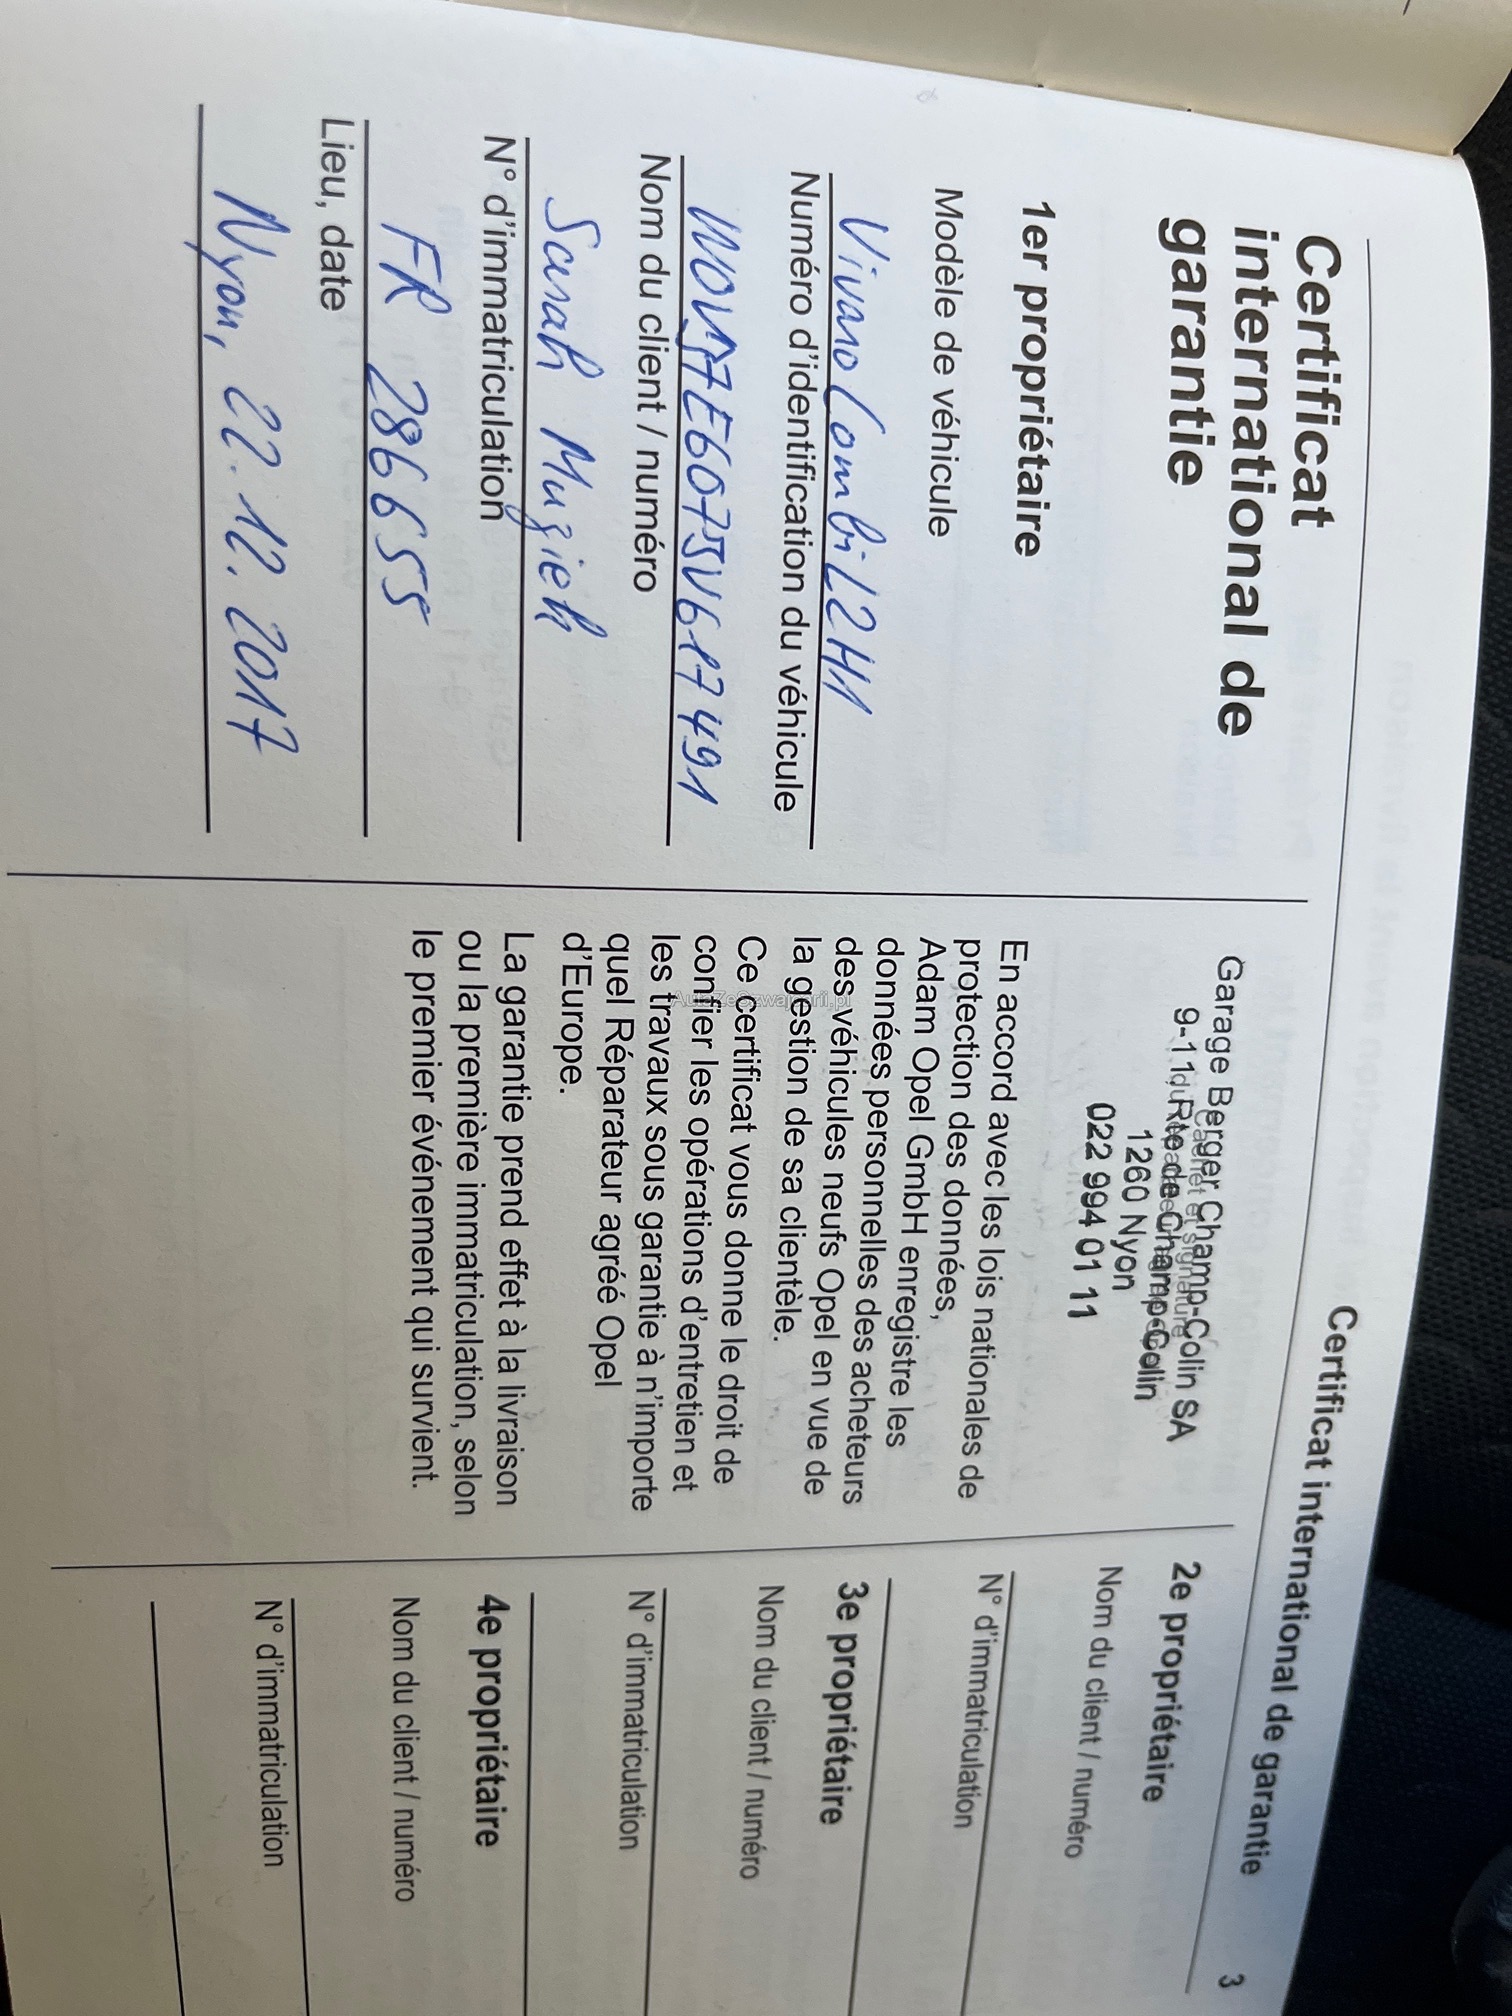 Certificat international de garantie 3
Certificat
international de
garantie
1er propriétaire
Modèle de véhicule
Vivaro Combi L2H1
Numéro d'identification du véhicule
Nom du client / numéro
Sarah
N° d'immatriculation
FR 286655
Lieu, date
Nyon, 22.12.2017
Garage Berger Champ-Colin SA
9-11, Rte de Champ-Colin
1260 Nyon
022 994 01 11
Cachet et signature
En accord avec les lois nationales de
protection des données,
Adam Opel GmbH enregistre les
données personnelles des acheteurs
des véhicules neufs Opel en vue de
la gestion de sa clientèle.
Ce certificat vous donne le droit de
confier les opérations d'entretien et
les travaux sous garantie à n'importe
quel Réparateur agréé Opel
d'Europe.
La garantie prend effet à la livraison
ou la première immatriculation, selon
le premier événement qui survient.
2e propriétaire
Nom du client / numéro
N° d'immatriculation
3e propriétaire
Nom du client / numéro
N° d'immatriculation
4e propriétaire
Nom du client / numéro
N° d'immatriculation
AutaZeSzwajcarii.pl